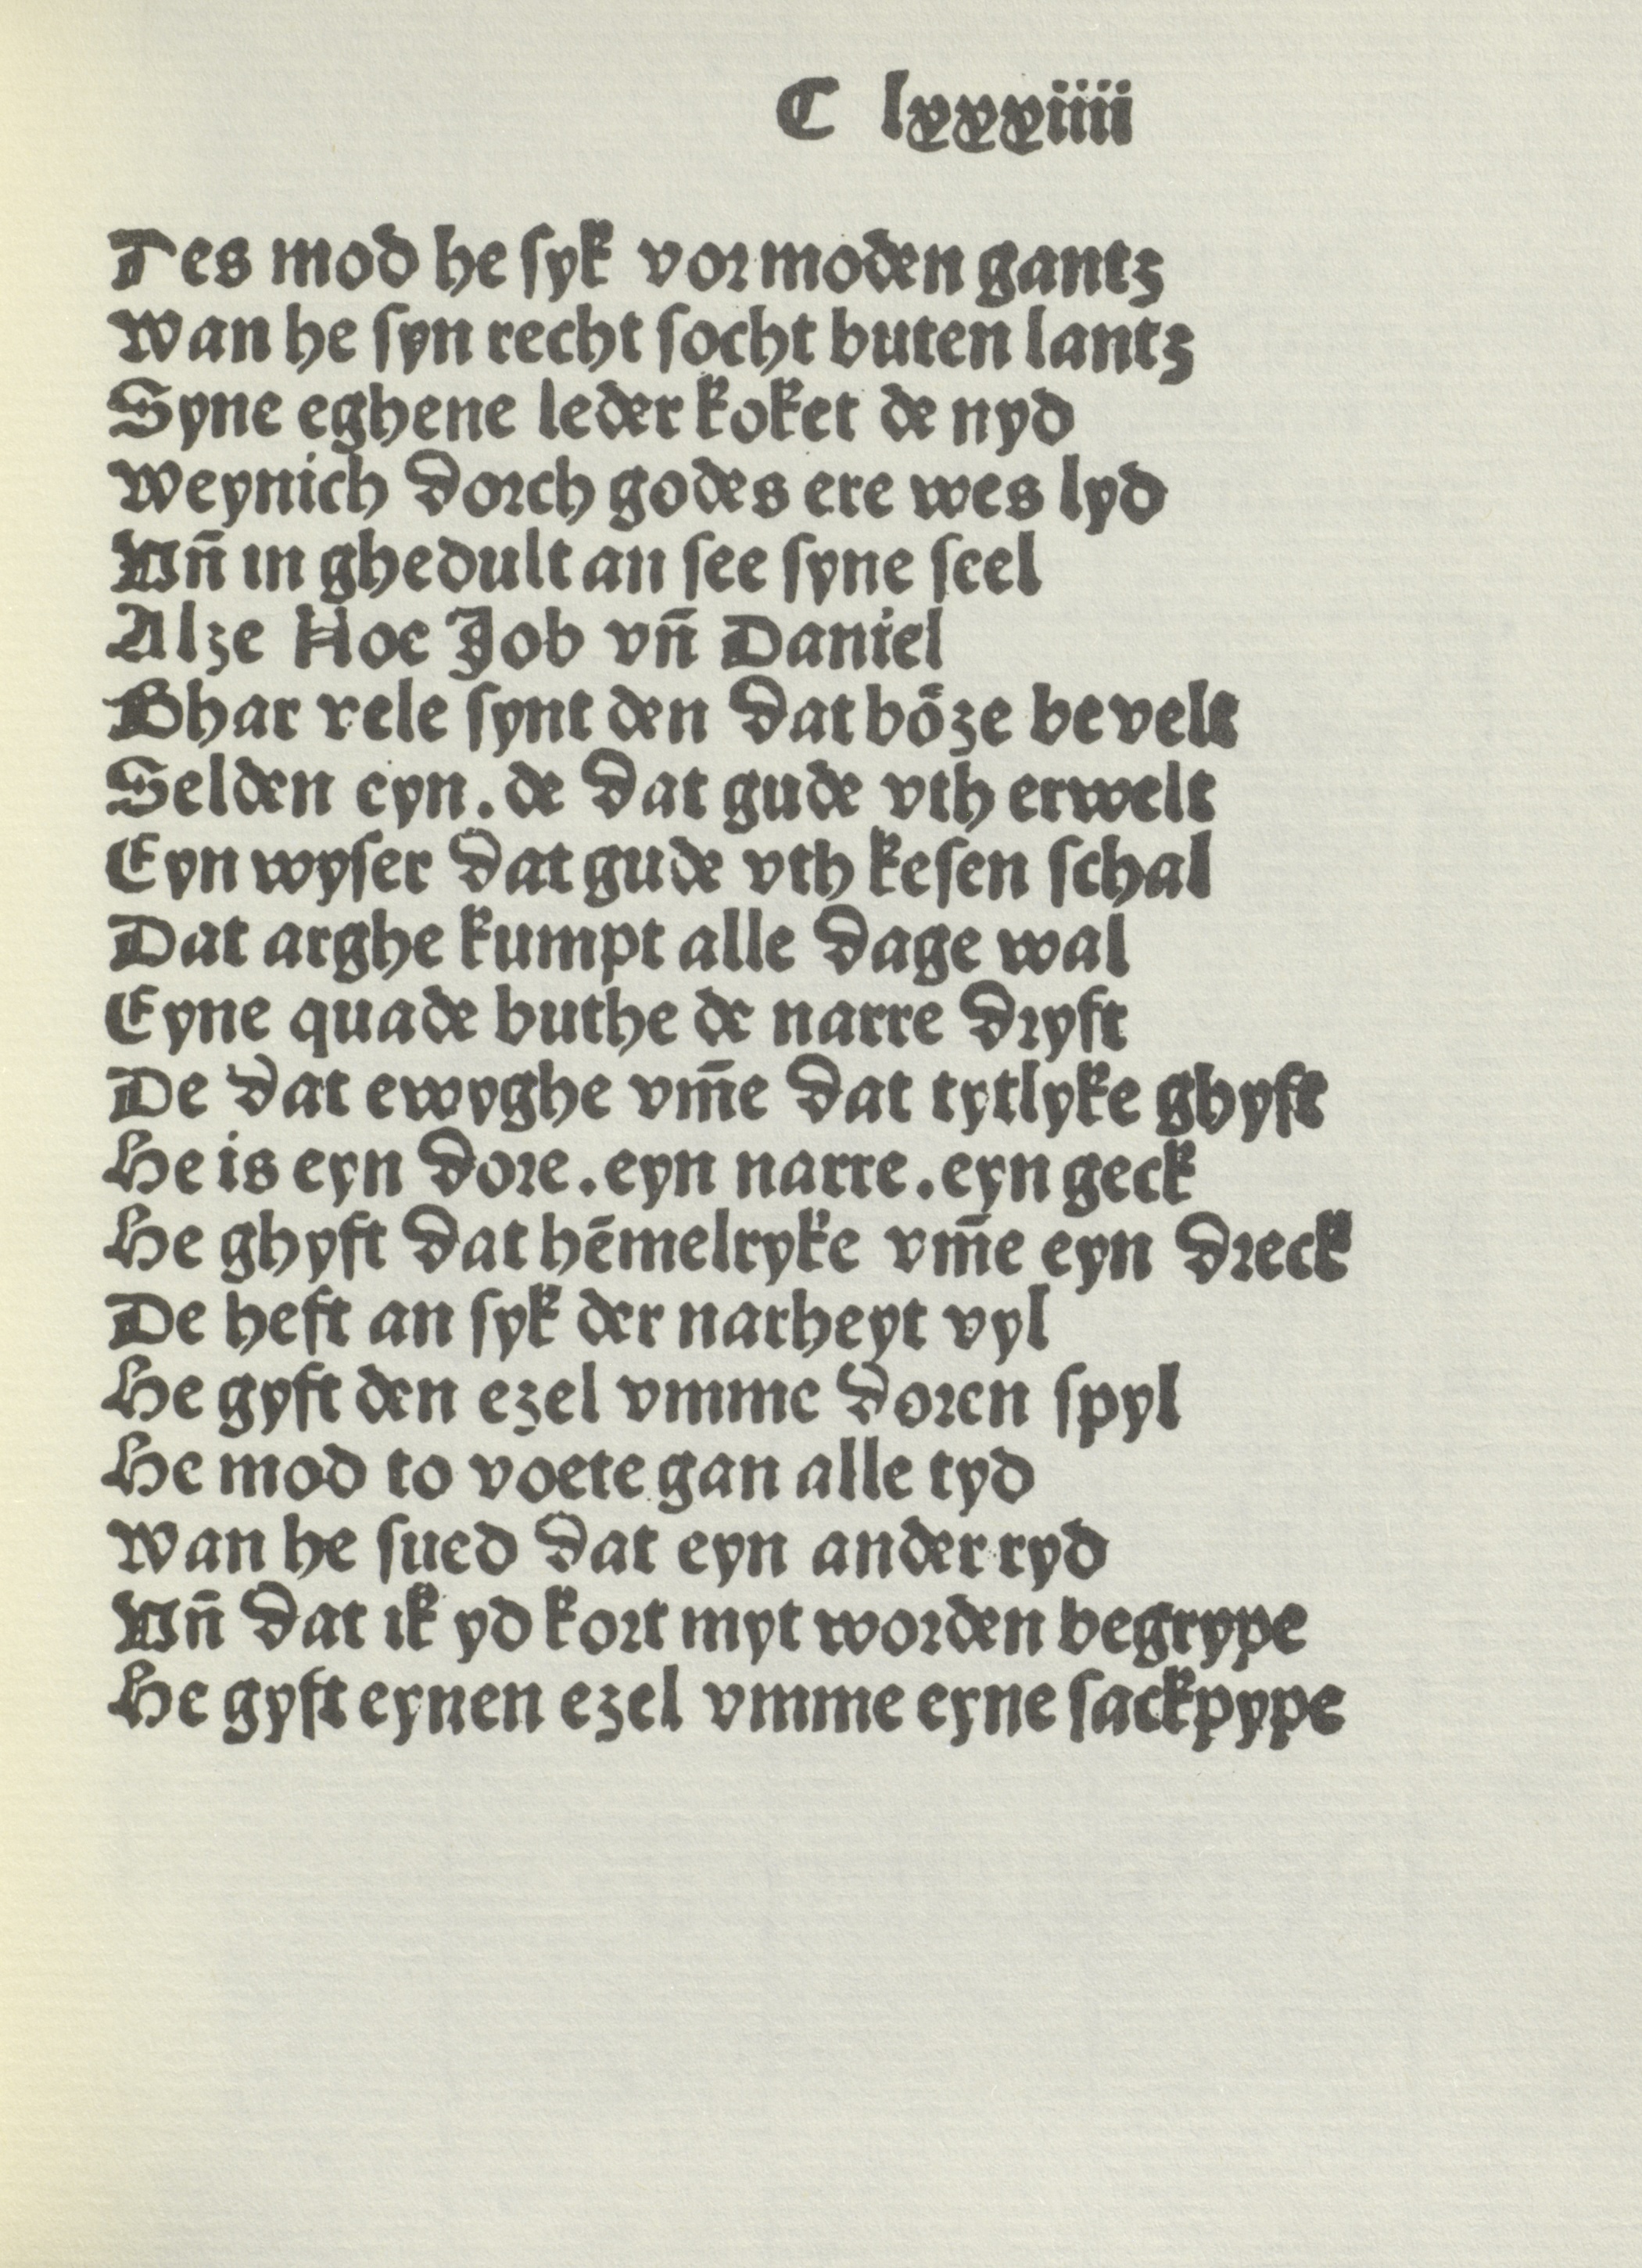 C lxxxiiii
Des mod he ſyk vormoden gantz
Wan he ſyn recht ſocht buten lantz
Syne eghene leder koket de nyd
Weynich dorch godes ere wes lyd
Vn̄ in ghedult an ſee ſyne ſeel
Alze Hoe Job vn̄ Daniel
Ghar vele ſynt den dat boͤze bevelt
Selden eyn. de dat gude vth erwelt
Eyn wyſer dat gude vth keſen ſchal
Dat arghe kumpt alle dage wal
Eyne quade buthe de narre dryft
De dat ewyghe vm̄e dat tytlyke ghyft
He is eyn dore. eyn narre. eyn geck
He ghyft dat hēmelryke vm̄e eyn dreck
De heft an ſyk der narheyt vyl
He gyft den ezel vmme doren ſpyl
He mod to voete gan alle tyd
Wan he ſued dat eyn ander ryd
Vn̄ dat ik yd kort myt worden begrype
He gyft eynen ezel vmme eyne ſackpype